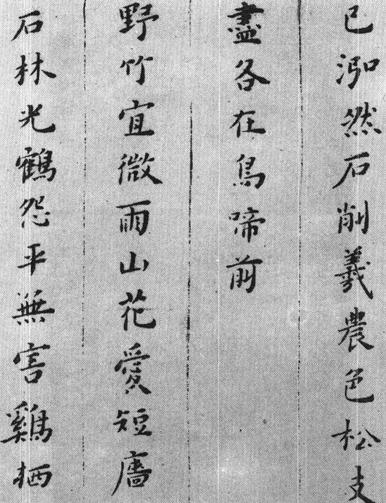 已泓然石削羲農色松支
盡各在鳥啼前
野竹宜微雨山花愛短廧
石林光鶴怨平蕪害鷄栖